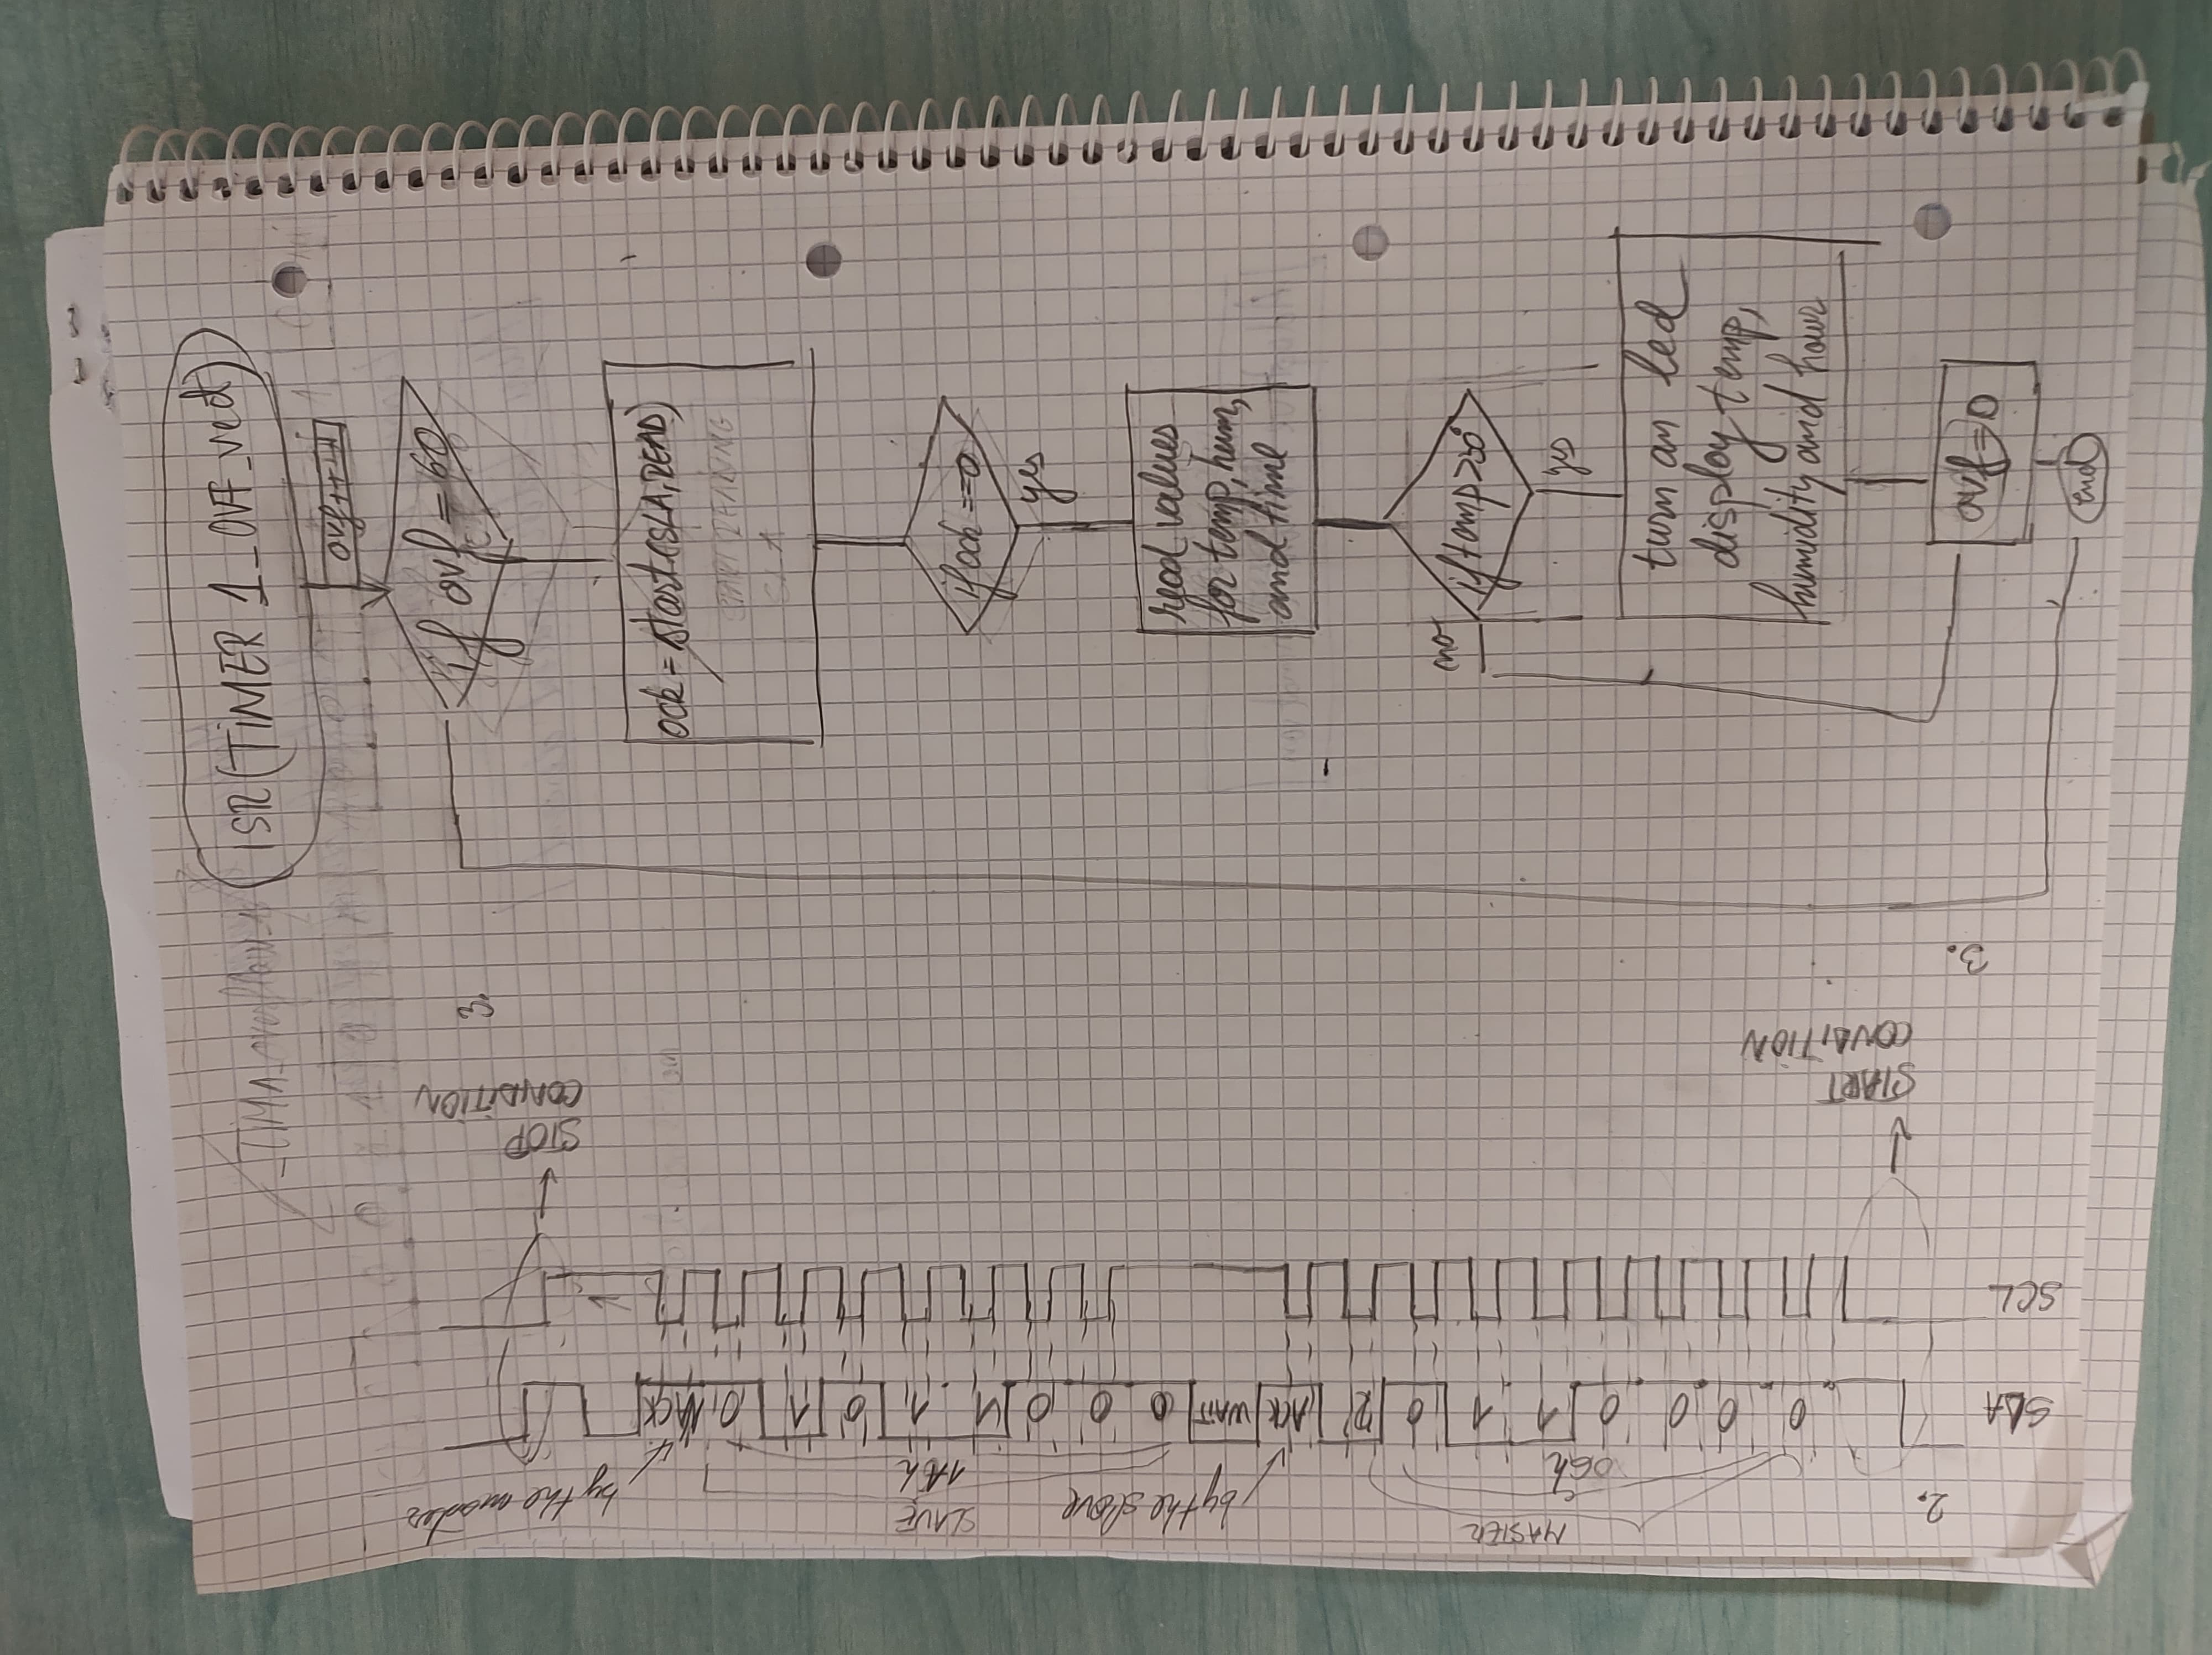 2.
MASTER
by the slave
SLAVE
by the master
06h
1Ah
SDA
0 0 0 0 1 1 0 R ACK WAIT 0 0 0 1 1 0 1 0 NACK
SCL
START
CONDITION
STOP
CONDITION
3.
3.
ISR(TIMER 1_OVF_vect)
ovf++
if ovf = 60
ack = start(SLA, READ)
if ack == 0
yes
read values
for temp, hum,
and time
if temp > 30°
no
yes
turn on led
display temp,
humidity and hour
ovf = 0
End